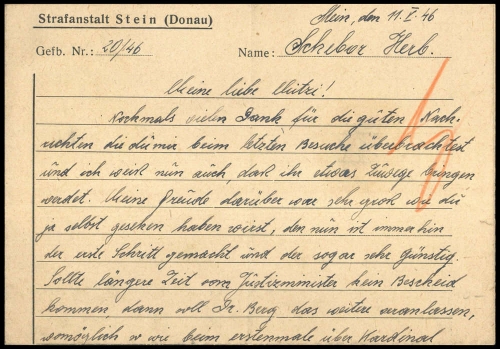 Strafanstalt Stein (Donau)
Stein, den 11.V.46
Gefb. Nr.: 20/46 Name: Schebor Herb.
Meine liebe Mutzi!
Nochmals vieln Dank für die guten Nach-
richten die du mir beim letzten Besuche überbrachtest
und ich weis nun auch, das ihr etwas zuwege bringen
werdet. Meine Freude darüber war sehr gros wie du
ja selbst gesehen haben wirst, den nun ist immerhin
der erste Schritt gemacht und der sogar sehr günstig.
Sollte längere Zeit vom Justizminister kein Bescheid
kommen, dann soll Dr. Berg das weitere veranlassen,
womöglich w wie beim erstenmale über Kardinal